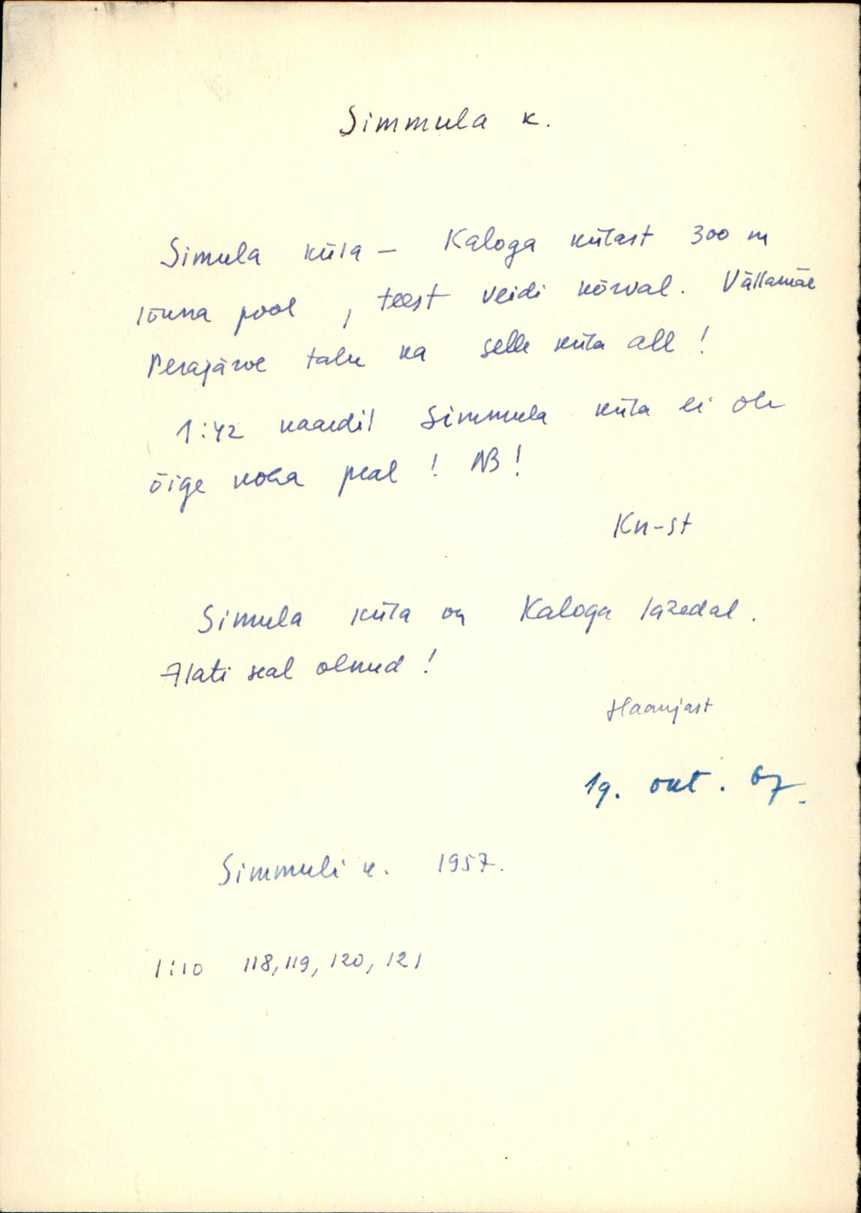 Simmula k.
Simula küla – Kaloga külast 300 m
lõuna pool, teest veidi kõrval. Vällamäe
Perajärve talu ka selle küla all!
1:42 kaardil Simmula küla ei ole
õige koha peal! NB!
Kn-st
Simula küla on Kaloga lähedal.
Alati seal olnud!
Haanjast
19. okt. 67.
Simmuli k. 1957.
1:10 118, 119, 120, 121